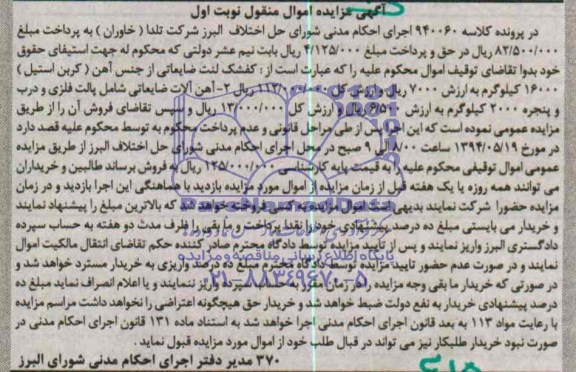 آگهی مزایده اموال منقول نوبت اول
در پرونده کلاسه ۹۴۰۰۶۰ اجرای احکام مدنی شورای حل اختلاف البرز شرکت تلدا ( خاوران ) به پرداخت مبلغ
۸۲/۵۰۰/۰۰۰ ریال در حق و پرداخت مبلغ ۴/۱۲۵/۰۰۰ ریال بابت نیم عشر دولتی که محکوم له جهت استیفای حقوق
خود بدوا تقاضای توقیف اموال محکوم علیه را که عبارت است از : کفشک لنت ضایعاتی از جنس آهن ( کربن استیل )
۱۶۰۰۰ کیلوگرم به ارزش ۷۰۰۰ ریال وارزش کل ۱۱۲/۰۰۰/۰۰۰ ریال ۲-آهن آلات ضایعاتی شامل پالت فلزی و درب
و پنجره ۲۰۰۰ کیلوگرم به ارزش ۶/۵۰۰ ریال و ارزش کل ۱۳/۰۰۰/۰۰۰ ریال و سپس تقاضای فروش آن را از طریق
مزایده عمومی نموده است که این اجرا پس از طی مراحل قانونی و عدم پرداخت محکوم به توسط محکوم علیه قصد دارد
در مورخ ۱۳۹۴/۰۵/۱۹ ساعت ۸/۰۰ الی ۹ صبح در محل اجرای احکام مدنی شورای حل اختلاف البرز از طریق مزایده
عمومی اموال توقیفی محکوم علیه را به قیمت پایه کارشناسی ۱۲۵/۰۰۰/۰۰۰ ریال به فروش برساند طالبین و خریداران
می توانند همه روزه یا یک هفته قبل از زمان مزایده از اموال مورد مزایده بازدید با هماهنگی این اجرا بازدید و در زمان
مزایده حضورا شرکت نمایند بدیهی است اموال مزایده به کسی فروخته خواهد شد که بالاترین مبلغ را پیشنهاد نمایند
و خریدار می بایستی مبلغ ده درصد پیشنهادی خود را نقدا پرداخت و مابقی را ظرف مدت دو هفته به حساب سپرده
دادگستری البرز واریز نمایند و پس از تأیید مزایده توسط دادگاه محترم صادر کننده حکم تقاضای انتقال مالکیت اموال
نمایند و در صورت عدم حضور تایید مزایده توسط دادگاه محترم مبلغ ده درصد واریزی به خریدار مسترد خواهد شد و
در صورتی که خریدار ما بقی وجه مزایده را در زمان مقرر به حساب سپرده واریز ننمایند و یا اعلام انصراف نماید مبلغ ده
درصد پیشنهادی خریدار به نفع دولت ضبط خواهد شد و خریدار حق هیچگونه اعتراضی را نخواهد داشت مراسم مزایده
با رعایت مواد ۱۱۳ به بعد قانون اجرای احکام مدنی اجرا خواهد شد به استناد ماده ۱۳۱ قانون اجرای احکام مدنی در
صورت نبود خریدار طلبکار نیز می تواند در قبال طلب خود از اموال مورد مزایده قبول نماید .
۳۷۰ مدیر دفتر اجرای احکام مدنی شورای البرز
پایگاه اطلاع رسانی مناقصه و مزایده
۰۲۱-۸۸۳۴۹۶۷۰-۵